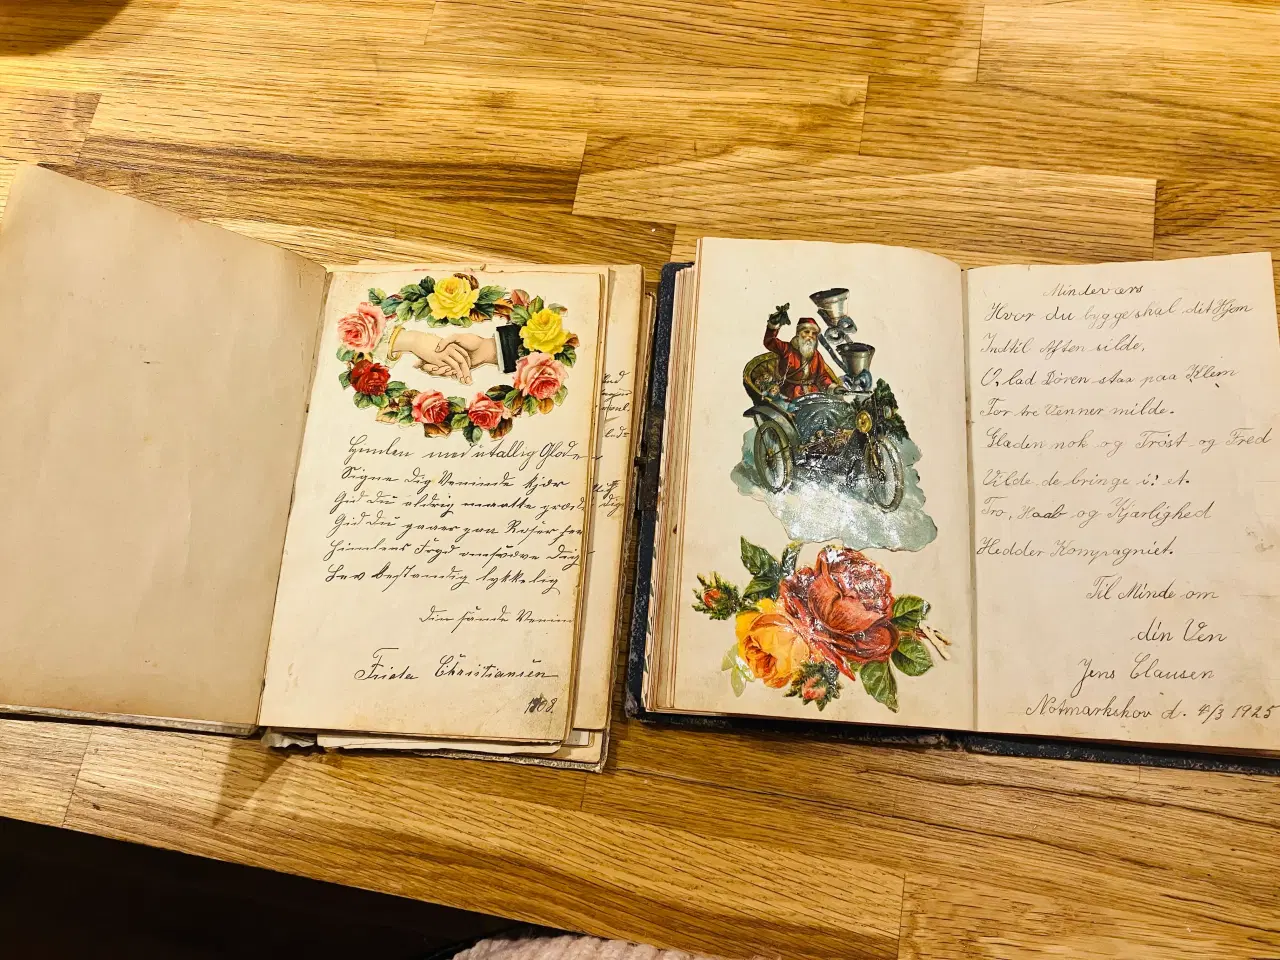 Himlen med utallig Glæde
Signe Dig Veninde kjær
Gid Du aldrig maatte græde
Gid Du gaaer paa Roser her
Himlens Fryd omsvæve Dig
Lev bestandig lykkelig
Din Venin
Frieda Christiansen
1908.
Mindevers
Hvor du bygge skal dit Hjem
Indtil Aften silde,
O, lad Døren staa paa Klem
For tre Venner milde.
Glæden nok og Trøst og Fred
Vilde de bringe i: et.
Tro, Haab og Kjærlighed
Hedder Kompagniet.
Til Minde om
din Ven
Jens Clausen
Notmarkskov d. 4/3 1925